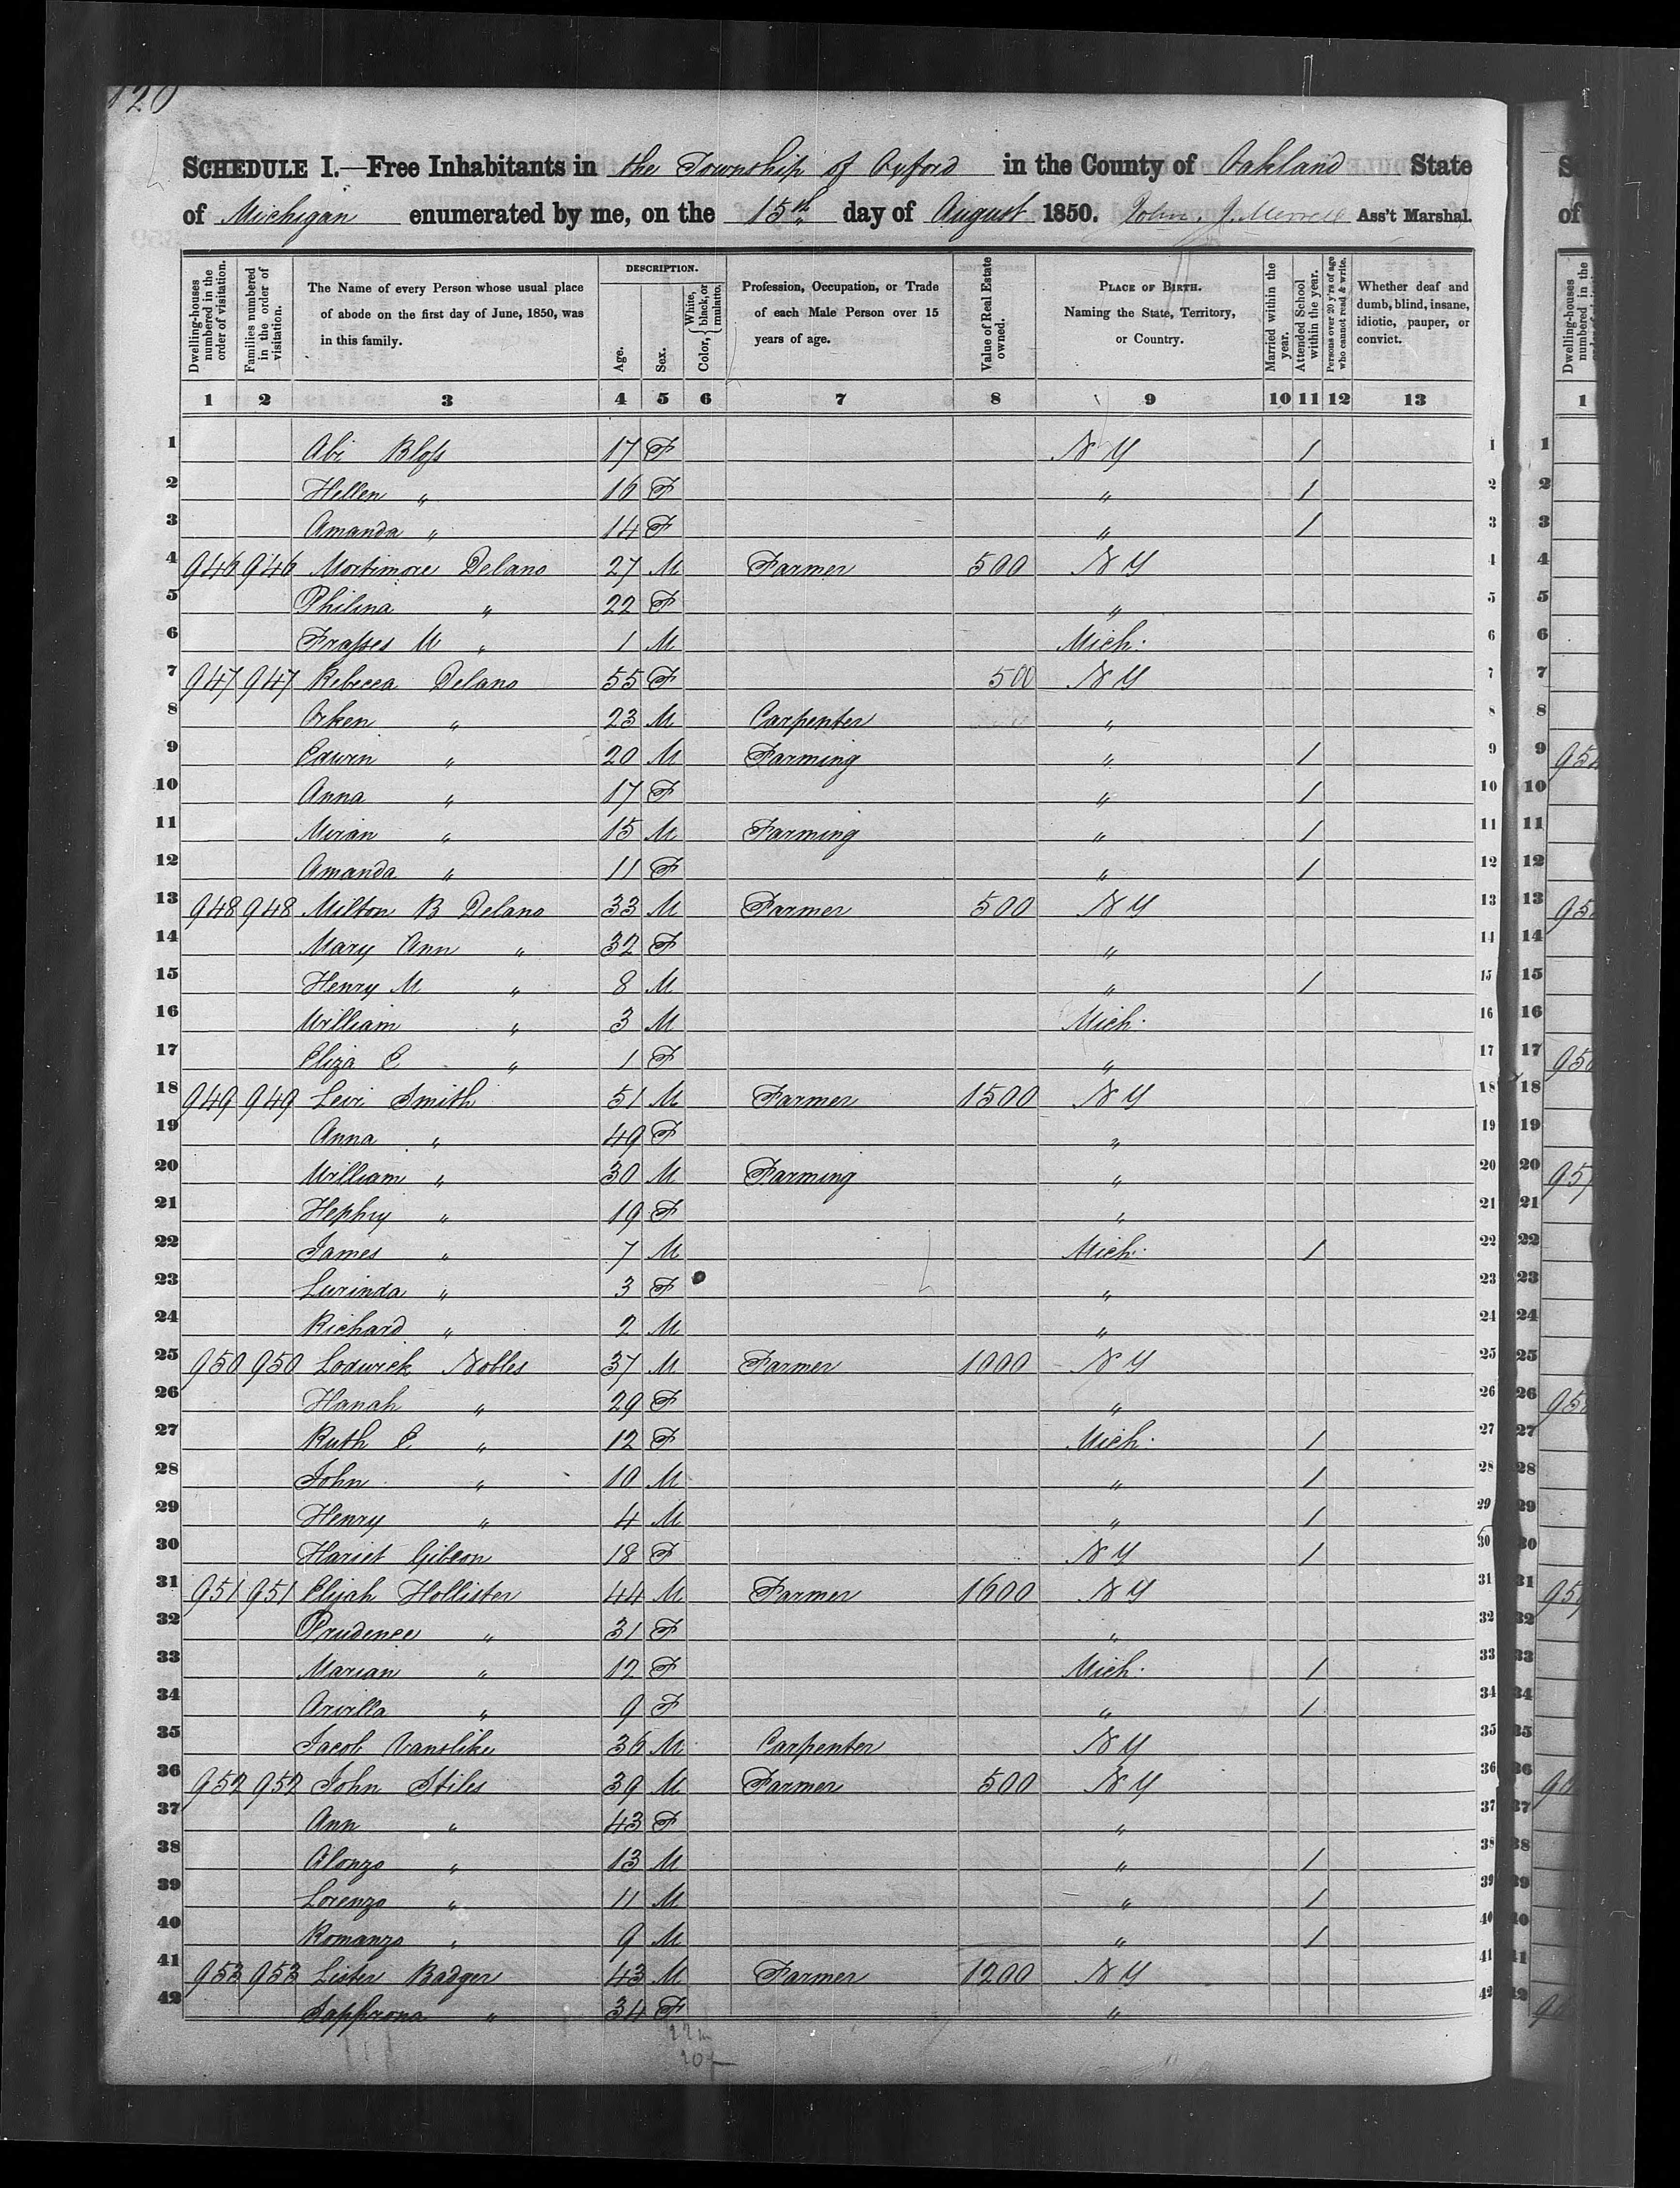 120
SCHEDULE I.—Free Inhabitants in the Township of Oxford in the County of Oakland State
of Michigan enumerated by me, on the 15th day of August 1850. John J. Merrell Ass't Marshal.
Dwelling-houses numbered in the order of visitation. Families numbered in the order of visitation. The Name of every Person whose usual place of abode on the first day of June, 1850, was in this family. DESCRIPTION. Age. Sex. Color, { White, black, or mulatto. Profession, Occupation, or Trade of each Male Person over 15 years of age. Value of Real Estate owned. PLACE OF BIRTH. Naming the State, Territory, or Country. Married within the year. Attended School within the year. Persons over 20 y'rs of age who cannot read & write. Whether deaf and dumb, blind, insane, idiotic, pauper, or convict.
1 2 3 4 5 6 7 8 9 10 11 12 13
1 Abi Bloss 17 F N Y 1 1
2 Hellen " 16 F " 1 2
3 Amanda " 14 F " 1 3
4 946 946 Mortimore Delano 27 M Farmer 500 N Y 4
5 Philina " 22 F " 5
6 Frasses M " 1 M Mich. 6
7 947 947 Rebecca Delano 55 F 500 N Y 7
8 Orken " 23 M Carpenter " 8
9 Edwin " 20 M Farming " 1 9
10 Anna " 17 F " 1 10
11 Miran " 15 M Farming " 1 11
12 Amanda " 11 F " 1 12
13 948 948 Milton B Delano 33 M Farmer 500 N Y 13
14 Mary Ann " 32 F " 14
15 Henry M " 8 M " 1 15
16 William " 3 M Mich. 16
17 Eliza C " 1 F " 17
18 949 949 Levi Smith 51 M Farmer 1500 N Y 18
19 Anna " 49 F " 19
20 William " 30 M Farming " 20
21 Hephzy " 19 F " 21
22 James " 7 M Mich. 1 22
23 Lurinda " 3 F " 23
24 Richard " 2 M " 24
25 950 950 Lodwick Nobles 37 M Farmer 1000 N Y 25
26 Hanah " 29 F " 26
27 Ruth E " 12 F Mich. 1 27
28 John " 10 M " 1 28
29 Henry " 4 M " 1 29
30 Hariet Gibson 18 F N Y 1 30
31 951 951 Elijah Hollister 44 M Farmer 1600 N Y 31
32 Prudence " 31 F " 32
33 Marian " 12 F Mich. 1 33
34 Arvilla " 9 F " 1 34
35 Jacob Vanslike 36 M Carpenter N Y 35
36 952 952 John Stiles 39 M Farmer 500 N Y 36
37 Ann " 43 F " 37
38 Alonzo " 13 M " 1 38
39 Lorenzo " 11 M " 1 39
40 Romanzo " 9 M " 1 40
41 953 953 Lister Badger 43 M Farmer 1200 N Y 41
42 Sapprona " 34 F " 42
22 m
20 f